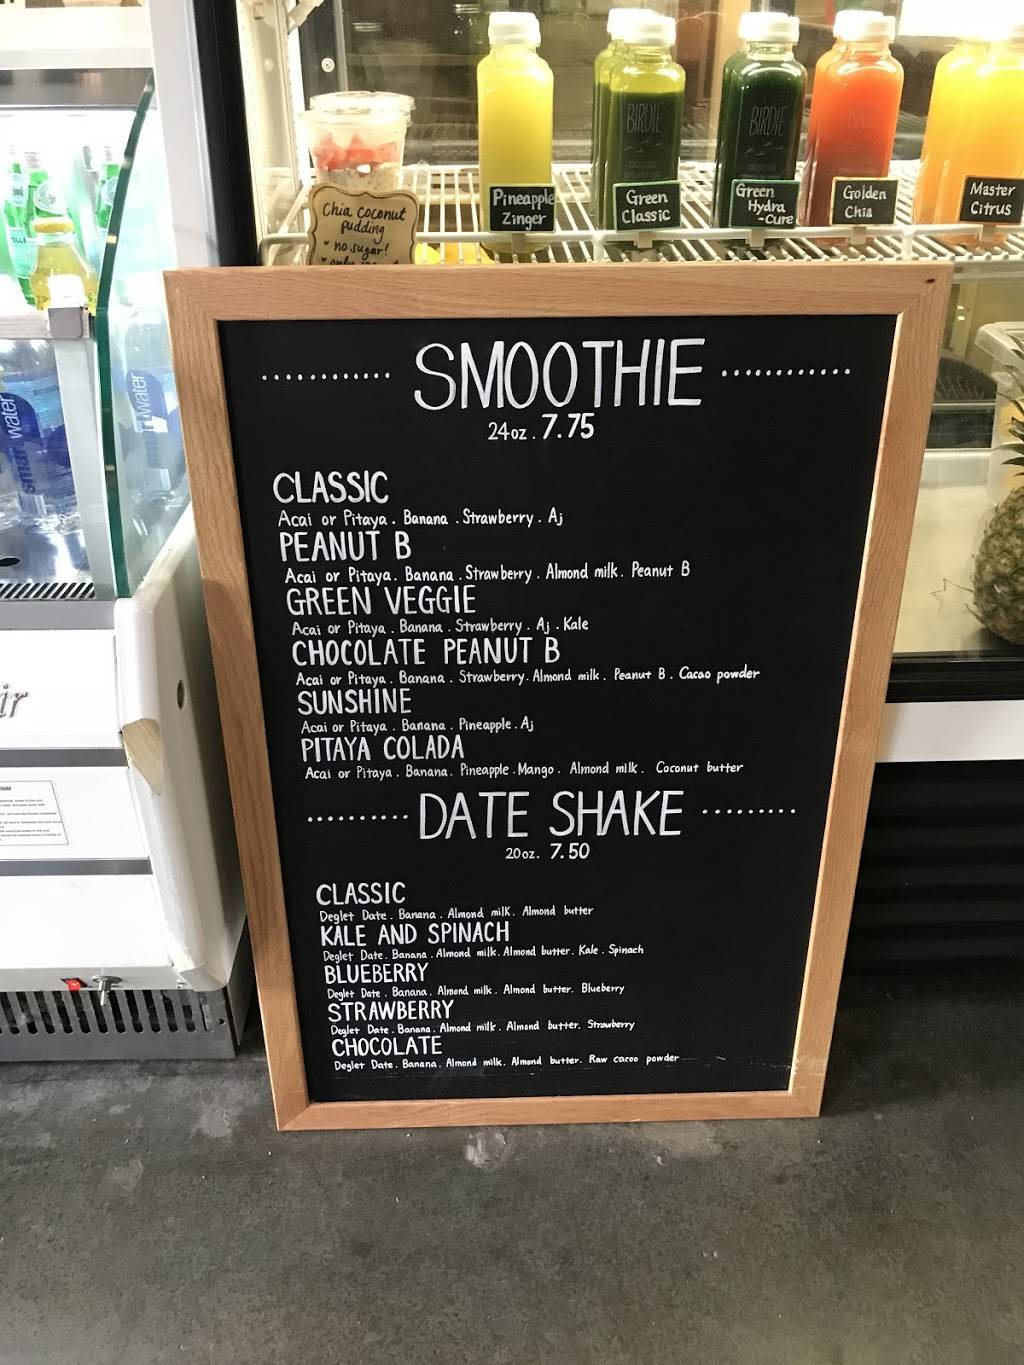 BIRDIE
BIRDIE
Pineapple
Zinger
Green
Classic
Green
Hydra
-Cure
Golden
Chia
Master
Citrus
Chia coconut
pudding
* no sugar!
smartwater
water
SMOOTHIE
24oz. 7.75
CLASSIC
Acai or Pitaya. Banana. Strawberry. Aj
PEANUT B
Acai or Pitaya. Banana. Strawberry. Almond milk. Peanut B
GREEN VEGGIE
Acai or Pitaya. Banana. Strawberry. Aj. Kale
CHOCOLATE PEANUT B
Acai or Pitaya. Banana. Strawberry. Almond milk. Peanut B. Cacao powder
SUNSHINE
Acai or Pitaya. Banana. Pineapple. Aj
PITAYA COLADA
Acai or Pitaya. Banana. Pineapple. Mango. Almond milk. Coconut butter
DATE SHAKE
20oz. 7.50
CLASSIC
Deglet Date. Banana. Almond milk. Almond butter
KALE AND SPINACH
Deglet Date. Banana. Almond milk. Almond butter. Kale. Spinach
BLUEBERRY
Deglet Date. Banana. Almond milk. Almond butter. Blueberry
STRAWBERRY
Deglet Date. Banana. Almond milk. Almond butter. Strawberry
CHOCOLATE
Deglet Date. Banana. Almond milk. Almond butter. Raw cacao powder